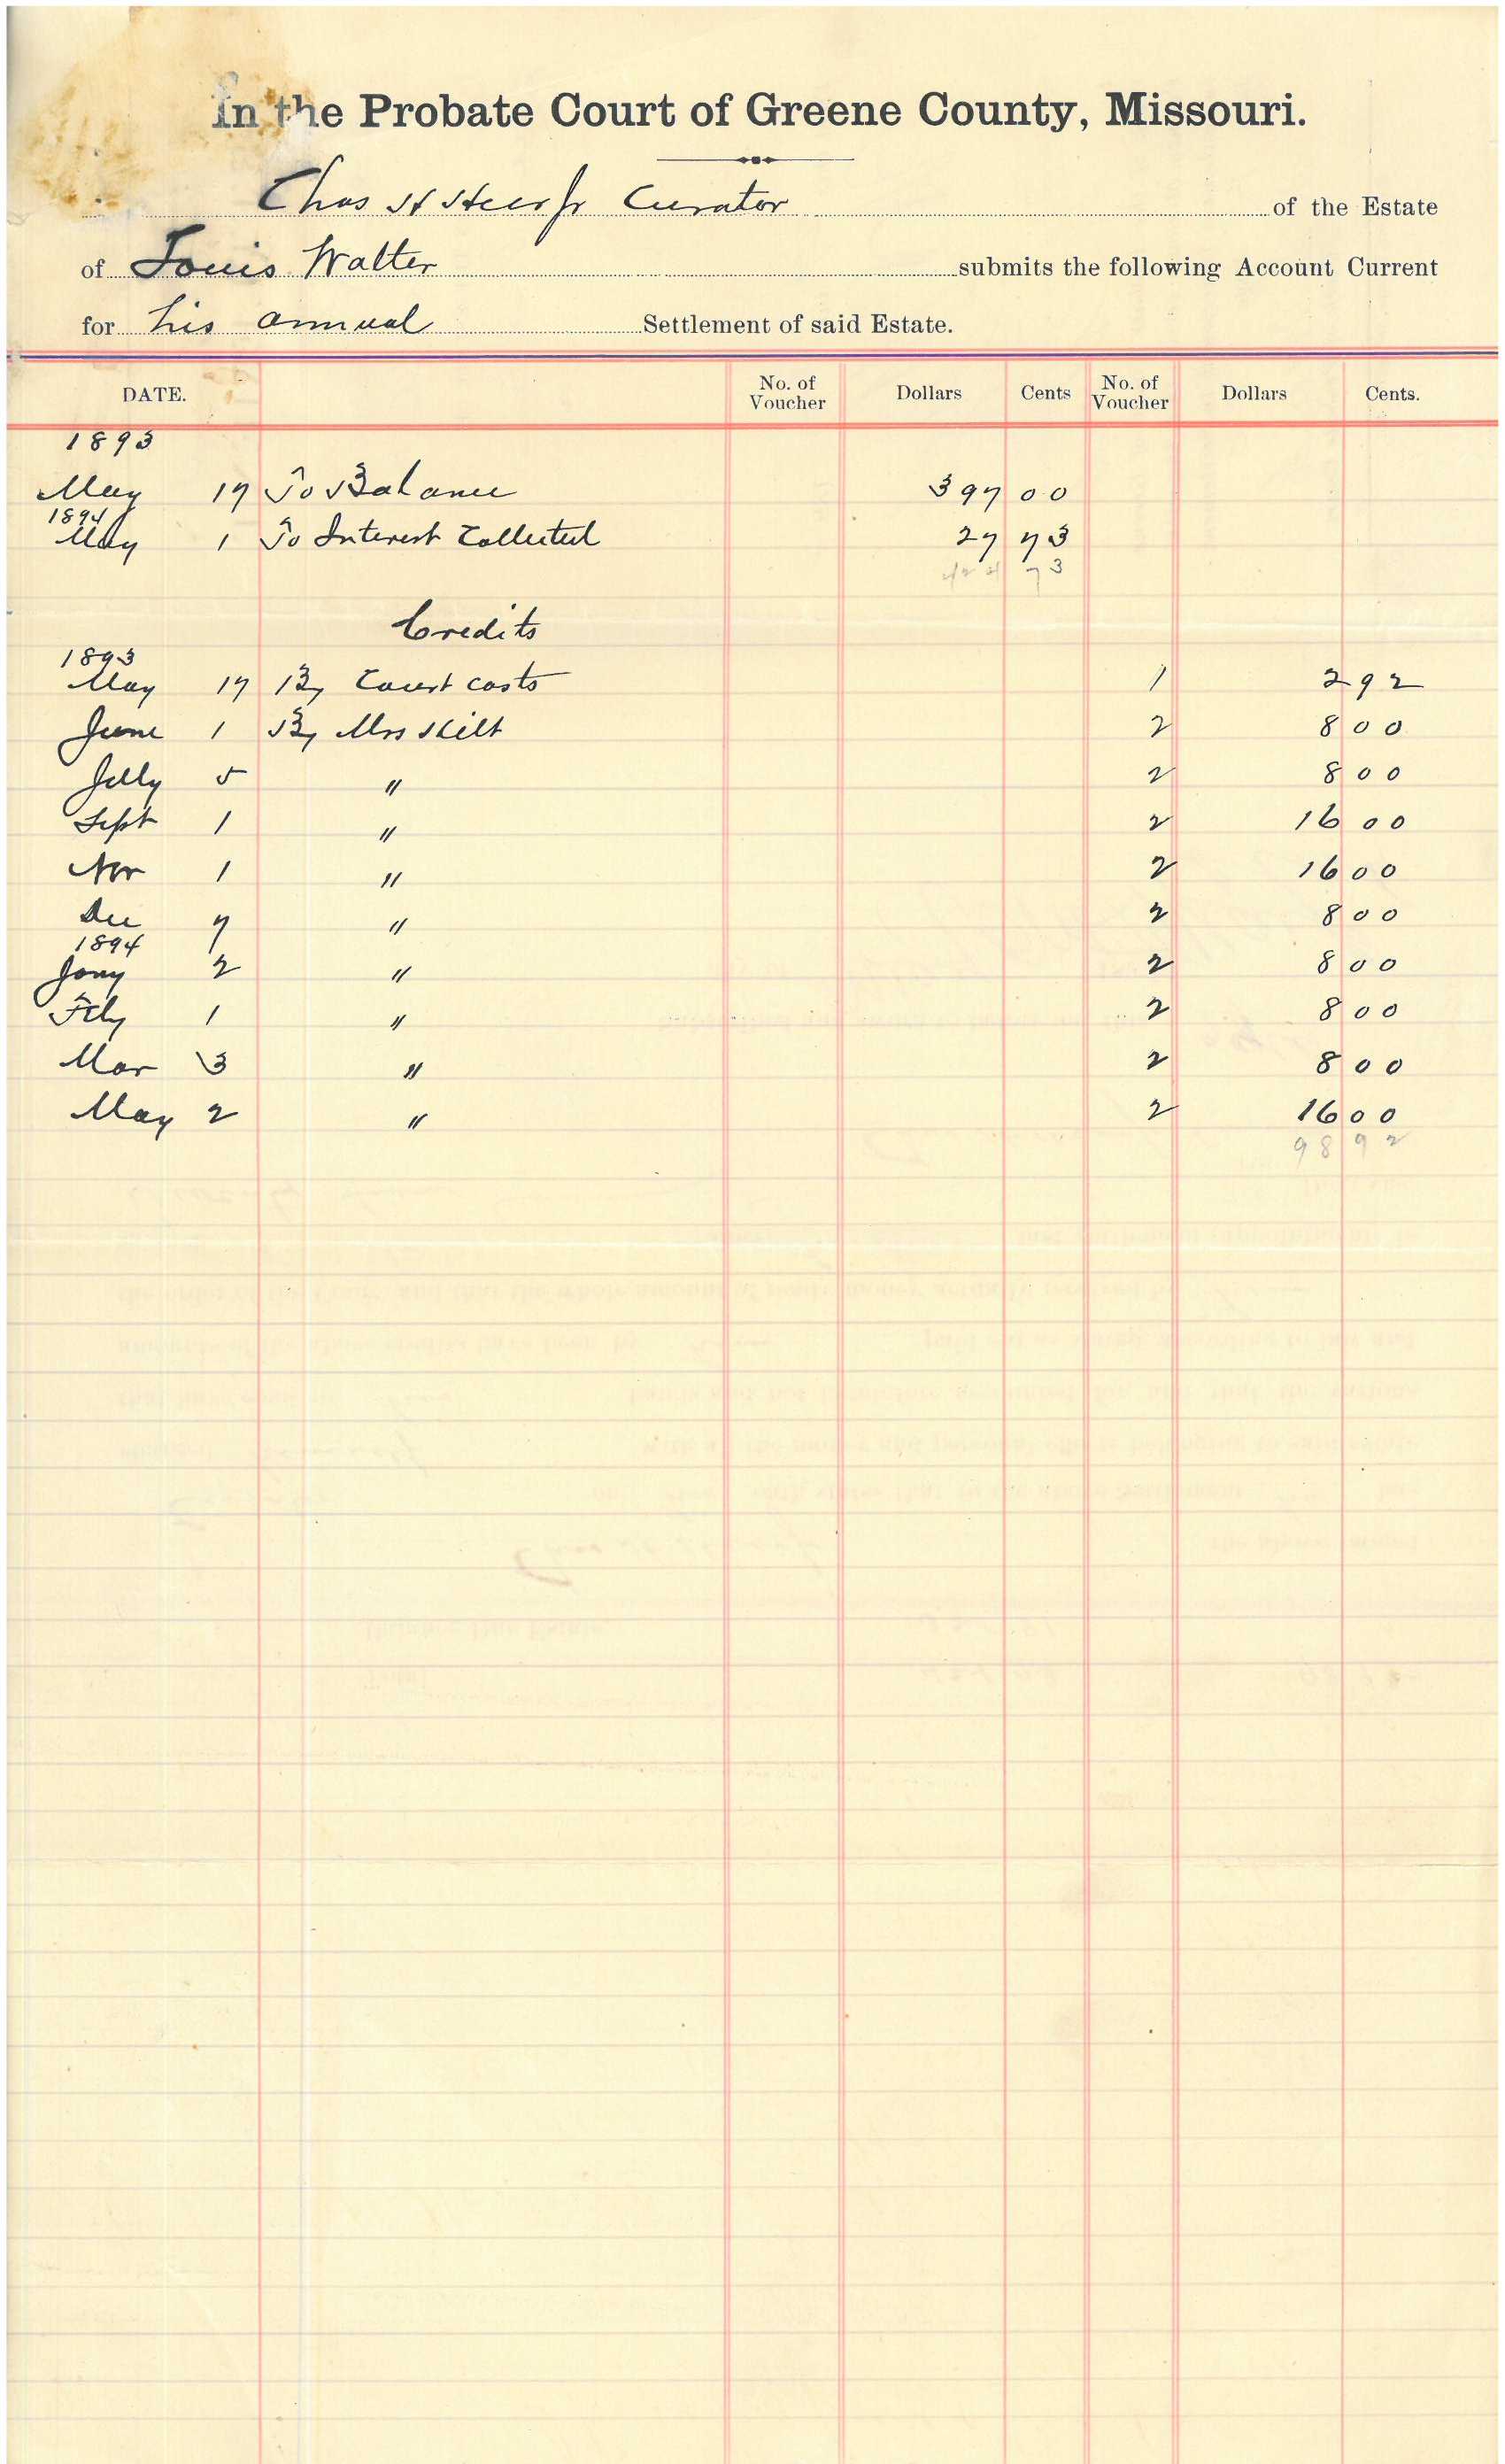 In the Probate Court of Greene County, Missouri.
Chas H Heer Jr Curator of the Estate
of Louis Walter submits the following Account Current
for his annual Settlement of said Estate.
DATE. No. of Voucher Dollars Cents No. of Voucher Dollars Cents.
1893
May 17 To Balance 397 00
1894
May 1 To Interest Collected 27 73
424 73
Credits
1893
May 17 By Court costs 1 2 92
June 1 By Mrs 2 8 00
July 5 " 2 8 00
Sept 1 " 2 16 00
Nov 1 " 2 16 00
Dec 7 " 2 8 00
1894
Jany 2 " 2 8 00
Feby 1 " 2 8 00
Mar 3 " 2 8 00
May 2 " 2 16 00
98 92